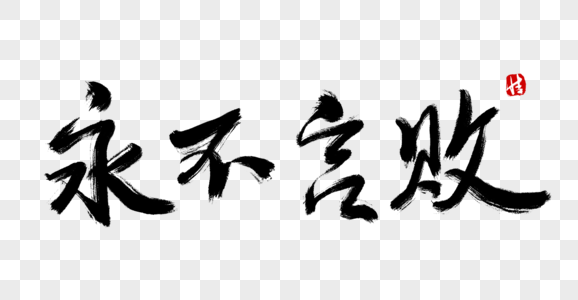 永不言败